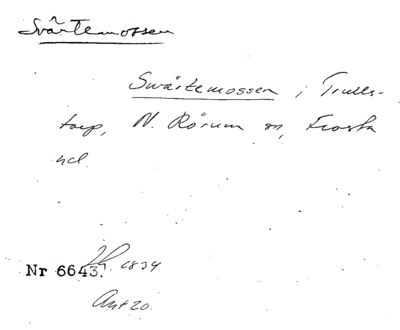 Svärtemossen
Swärtemossen i Trulls-
torp, N. Rörum sn, Frosta
hd.
Nr 6643. 1834
Ant 20.